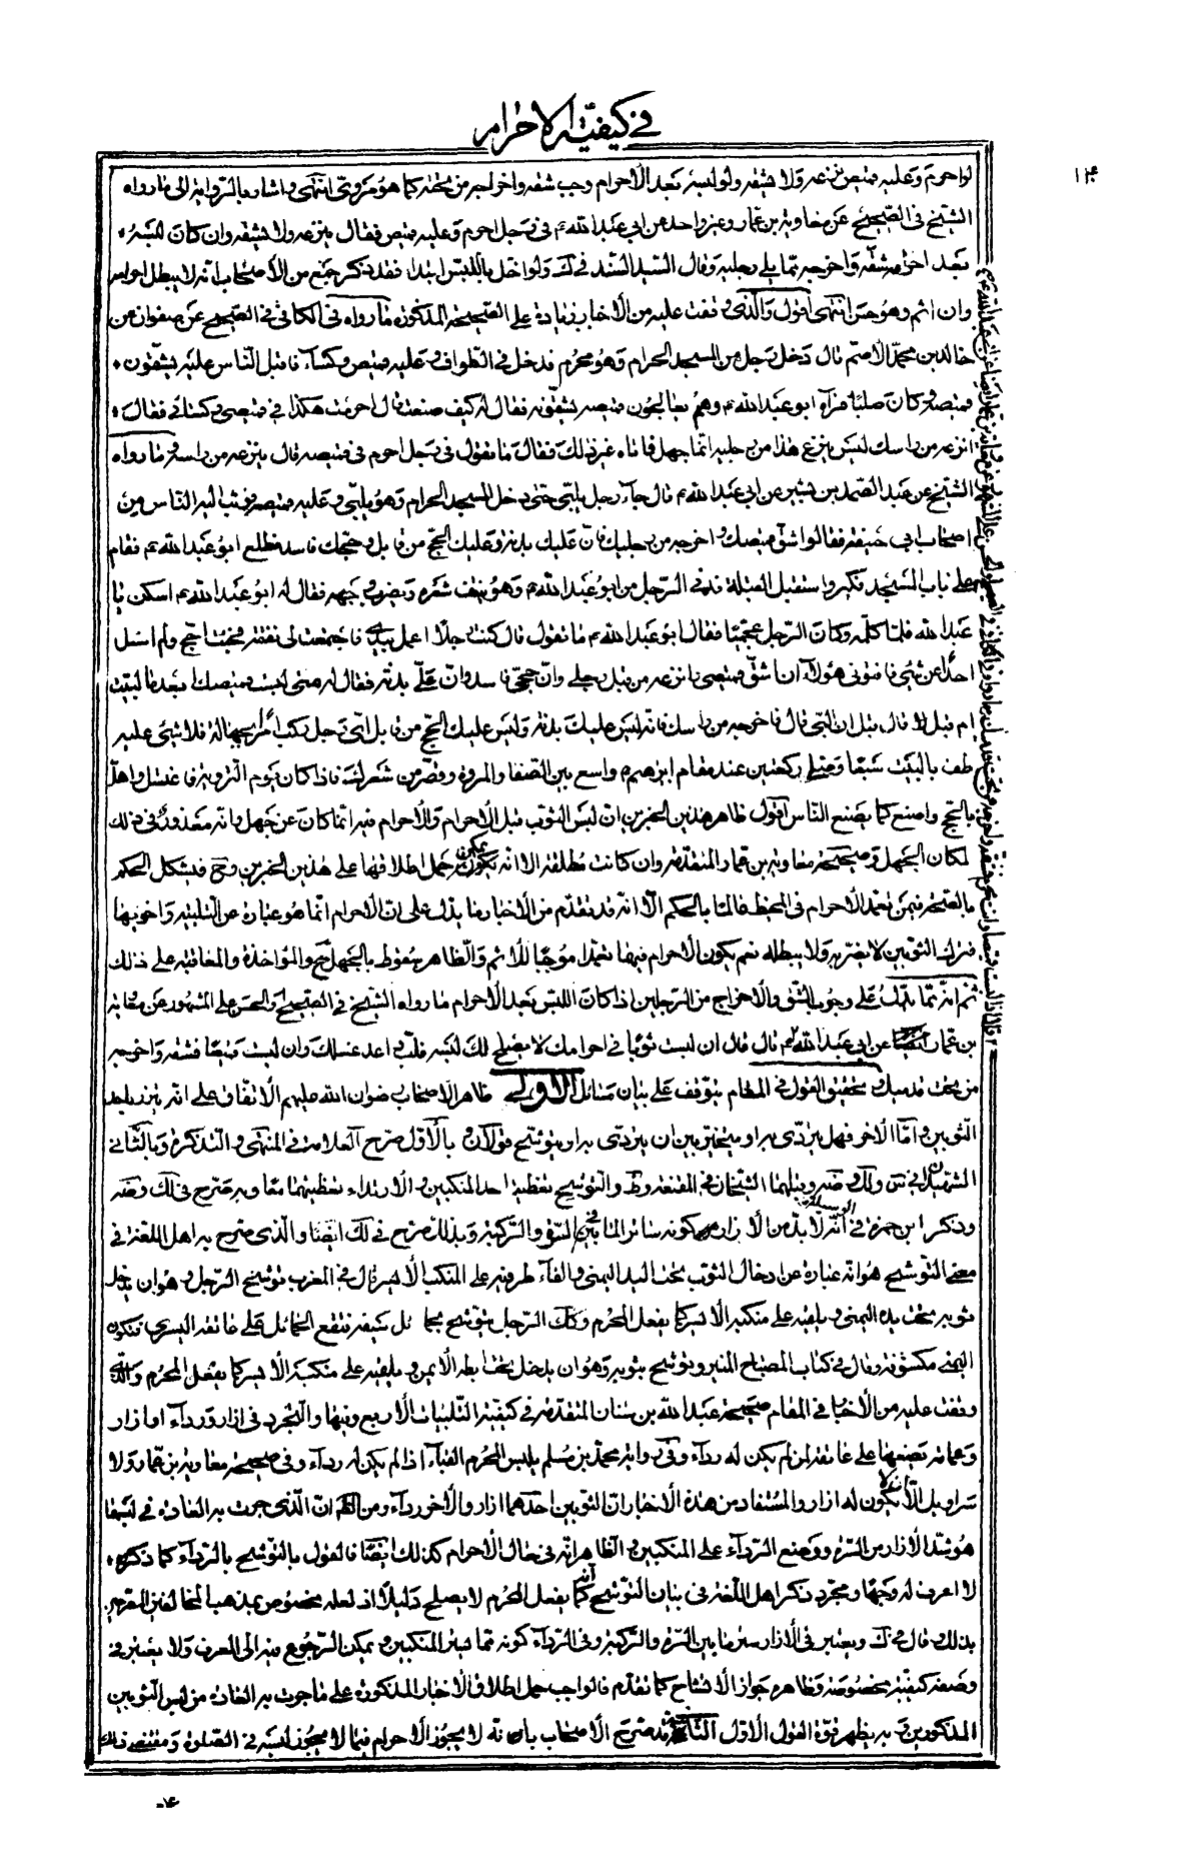 في كيفية الاحرام
١٣
لو احرم وعليه قميص نزعه ولا يشقه ولو لبسه بعد الاحرام وجب شقه واخراجه من تحته كما هو مروي انتهى واشار بالرواية الى ما رواه
الشيخ في الصحيح عن معاوية بن عمار وغير واحد عن ابي عبد الله ع في رجل احرم وعليه قميص فقال ينزعه ولا يشقه وان كان لبسه
بعد احرامه شقه واخرجه مما يلي رجليه وقال السيد السند في ك ولو اخل باللبس ابتداء فقد ذكر جمع من الاصحاب انه لا يبطل احرامه
وان اثم وهو حسن انتهى اقول والذي وقفت عليه من الاخبار زيادة على الصحيحة المذكورة ما رواه في الكافي في الصحيح عن صفوان عن
خالد بن محمد الاصم قال دخل رجل من المسجد الحرام وهو محرم فدخل في الطواف وعليه قميص وكساء فاقبل الناس عليه يشقون
قميصه وكان صلبا فراه ابو عبد الله ع وهم يعالجون قميصه يشقونه فقال له كيف صنعت قال احرمت هكذا في قميصي وكسائي فقال
انزعه من راسك ليس ينزع هذا من رجليه انما جهل فاتاه غير ذلك فقال ما تقول في رجل احرم في قميصه قال ينزعه من راسه وما رواه
الشيخ عن عبد الصمد بن بشير عن ابي عبد الله ع قال جاء رجل يلبي حتى دخل المسجد الحرام وهو يلبي وعليه قميصه فوثب اليه الناس من
اصحاب ابي حنيفة فقالوا شق قميصك واخرجه من رجليك فان عليك بدنة وعليك الحج من قابل وحجك فاسد فطلع ابو عبد الله ع فقام
على باب المسجد فكبر واستقبل القبلة فدنى الرجل من ابو عبد الله ع وهو ينتف شعره ويضرب وجهه فقال له ابو عبد الله ع اسكن يا
عبد الله فلما كلمه وكان الرجل عجميا فقال ابو عبد الله ع ما تقول قال كنت رجلا اعمل بيدي فاجتمعت لي نفقة فجئت احج ولم اسئل
احدا عن شيء فافتوني هؤلاء ان اشق قميصي وانزعه من قبل رجلي وان حجي فاسد وان علي بدنة فقال له متى لبست قميصك ابعد ما لبيت
ام قبل قال قبل ان البي قال فاخرجه من راسك فانه ليس عليك بدنة وليس عليك الحج من قابل اي رجل ركب امرا بجهالة فلا شيء عليه
طف بالبيت سبعا وصل ركعتين عند مقام ابرهيم واسع بين الصفا والمروة وقصر من شعرك فاذا كان يوم التروية فاغتسل واهل
بالحج واصنع كما يصنع الناس اقول ظاهر هذين الخبرين ان لبس الثوب قبل الاحرام والاحرام فيه انما كان عن جهل وانه معذور في ذلك
لمكان الجهل وصحيحة معاوية بن عمار المتقدمة وان كانت مطلقة الا انه يمكن حمل اطلاقها على هذين الخبرين وح فيشكل الحكم
بالصحة فيمن تعمد الاحرام في المخيط عالما بالحكم الا انه قد تقدم من الاخبار ما يدل على ان الاحرام انما هو عبارة عن التلبية واخويها
فترك الثوبين لا يضر به ولا يبطله نعم يكون الاحرام فيها تعمدا موجبا للاثم والظاهر سقوط بالجهل والمؤاخذة والمعاقبة على ذلك
ثم انه مما يدل على وجوب الشق والاخراج من الرجلين اذا كان اللبس بعد الاحرام ما رواه الشيخ في الصحيح والحسن على المشهور عن معاوية
بن عمار عن ابي عبد الله ع قال ان لبست ثوبا في احرامك لا يصلح لك لبسه فلب واعد غسلك وان لبست قميصا فشقه واخرجه
من تحت قدميك وتحقيق القول في المقام يتوقف على بيان مسائل الاولى ظاهر الاصحاب رضوان الله عليهم الاتفاق على انه يتزر باحد
الثوبين واما الاخر فهل يتردى به او يتخير بين ان يتردى به او يتوشح قولان وبالاول صرح العلامة في المنتهى والتذكرة وبالثاني
الشهيدان في س ولك وضه ومثلهما الشيخان في المقنعة وط والتوشح تغطية احد المنكبين والارتداء تغطيتهما معا وبه صرح في لك وضه
وذكر ابن حمزة في الوسيلة انه لا بد من الازار كونه ساترا لما بين السرة والركبة وبذلك صرح في لك ايضا والذي صرح به اهل اللغة في
معنى التوشح هو انه عبارة عن ادخال الثوب تحت اليد اليمنى والقاء طرفيه على المنكب الايسر قال في المغرب توشح الرجل وهو ان يدخل
ثوبه تحت يده اليمنى ويلقيه على منكبه الايسر كما يفعل المحرم وكك الرجل يتوشح بحمائل سيفه فتقع الحمائل على عاتقه اليسرى وتكون
اليمنى مكشوفة وقال في كتاب المصباح المنير وتوشح بثوبه وهو ان يدخل تحت ابطه الايمن ويلقيه على منكبه الايسر كما يفعل المحرم والذي
وقفت عليه من الاخبار في المقام صحيحة عبد الله بن سنان المتقدمة في كيفية التلبيات الاربع وفيها والتجرد في ازار ورداء او ازار
وعمامة يضعها على عاتقه لمن لم يكن له رداء وفي رواية محمد بن مسلم يلبس المحرم القباء اذا لم يكن له رداء وفي صحيحة معاوية بن عمار ولا
سراويل الا ان لا يكون له ازار والمستفاد من هذه الاخبار ان الثوبين احدهما ازار والاخر رداء ومن الظ ان الذي جرت به العادة في لبسها
هو شد الازار من السرة ووضع الرداء على المنكبين والظاهر انه في حال الاحرام كذلك ايضا فالقول بالتوشح بالرداء كما ذكره
لا اعرف له وجها ومجرد ذكر اهل اللغة في بيان التوشح انه كما يفعل المحرم لا يصلح دليلا اذ لعله مخصوص بمذهب المخالفين
بذلك قال في ك ويعتبر في الازار ستر ما بين السرة والركبة وفي الرداء كونه مما يستر المنكبين ويمكن الرجوع فيه الى العرف ولا يعتبر في
وضعه كيفية مخصوصة وظاهره جواز الاتشاح كما تقدم فالواجب حمل اطلاق الاخبار المذكورة على ما جرت به العادة من لبس الثوبين
المذكورين وبه يظهر قوة القول الاول الثانية قد صرح الاصحاب بانه لا يجوز الاحرام فيما لا يجوز لبسه في الصلوة ومقتضى ذلك